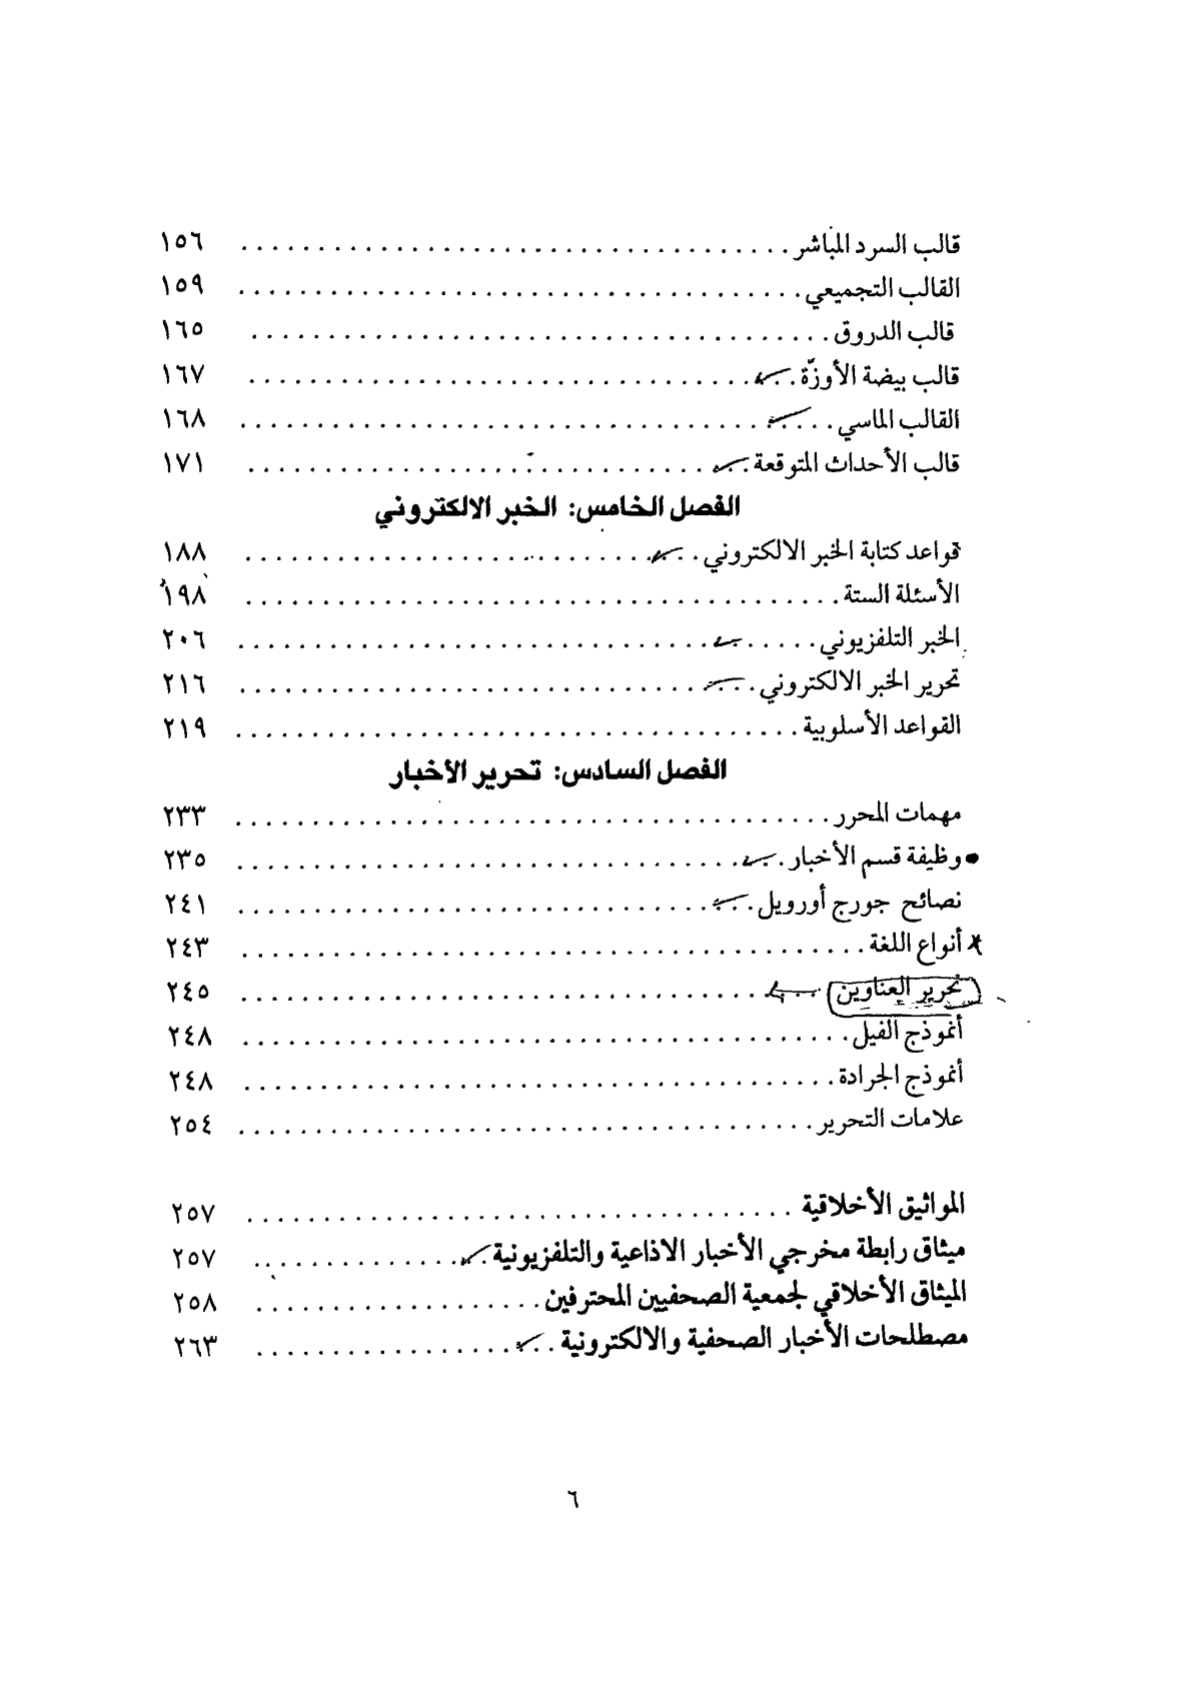 قالب السرد المباشر . . . . . . . . . . . . . . . . . . . . ١٥٦
القالب التجميعي . . . . . . . . . . . . . . . . . . . . ١٥٩
قالب الدروق . . . . . . . . . . . . . . . . . . . . ١٦٥
قالب بيضة الأوزّة . . . . . . . . . . . . . . . . . . . . ١٦٧
القالب الماسي . . . . . . . . . . . . . . . . . . . . ١٦٨
قالب الأحداث المتوقعة . . . . . . . . . . . . . . . . . . . . ١٧١
الفصل الخامس: الخبر الالكتروني
قواعد كتابة الخبر الالكتروني . . . . . . . . . . . . . . . . . . . . ١٨٨
الأسئلة الستة . . . . . . . . . . . . . . . . . . . . ١٩٨
الخبر التلفزيوني . . . . . . . . . . . . . . . . . . . . ٢٠٦
تحرير الخبر الالكتروني . . . . . . . . . . . . . . . . . . . . ٢١٦
القواعد الأسلوبية . . . . . . . . . . . . . . . . . . . . ٢١٩
الفصل السادس: تحرير الأخبار
مهمات المحرر . . . . . . . . . . . . . . . . . . . . ٢٣٣
وظيفة قسم الأخبار . . . . . . . . . . . . . . . . . . . . ٢٣٥
نصائح جورج أورويل . . . . . . . . . . . . . . . . . . . . ٢٤١
أنواع اللغة . . . . . . . . . . . . . . . . . . . . ٢٤٣
تحرير العناوين . . . . . . . . . . . . . . . . . . . . ٢٤٥
أنموذج الفيل . . . . . . . . . . . . . . . . . . . . ٢٤٨
أنموذج الجرادة . . . . . . . . . . . . . . . . . . . . ٢٤٨
علامات التحرير . . . . . . . . . . . . . . . . . . . . ٢٥٤
المواثيق الأخلاقية . . . . . . . . . . . . . . . . . . . . ٢٥٧
ميثاق رابطة مخرجي الأخبار الاذاعية والتلفزيونية . . . . . . . . . . ٢٥٧
الميثاق الأخلاقي لجمعية الصحفيين المحترفين . . . . . . . . . . ٢٥٨
مصطلحات الأخبار الصحفية والالكترونية . . . . . . . . . . ٢٦٣
٦